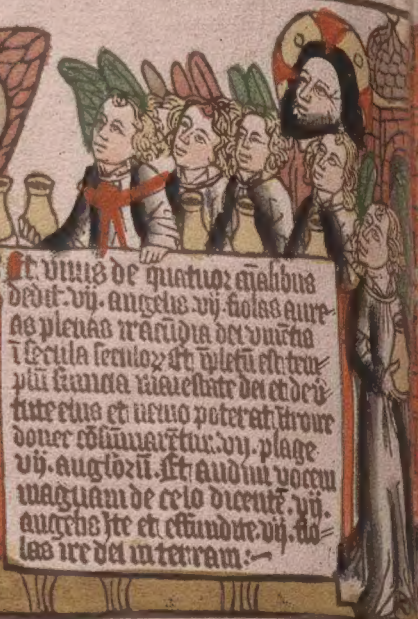 Et. vnus de quatuor āīalibus
dedit .vij. angelis .vij. fiolas aure-
as plenas iracūdia dei viuētis
ī secula seculoꝝ Et īpletū est tem-
plū fumicia maiestate dei et de v̄-
tute eius et nemo poterat ītroire
donec cōsūmarētur .vij. plage
vij. anglorū. Et audiui vocem
magnam de celo dicentē .vij.
angelis Ite et effundite .vij. fio-
las ire dei in terram :~